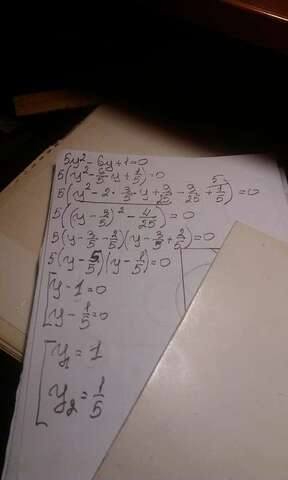 5y² - 6y + 1 = 0
5(y² - 6/5 y + 1/5) = 0
5(y² - 2 · 3/5 · y + 9/25 - 9/25 + 1/5) = 0
5((y - 3/5)² - 4/25) = 0
5(y - 3/5 - 2/5)(y - 3/5 + 2/5) = 0
5(y - 5/5)(y - 1/5) = 0
[y - 1 = 0
y - 1/5 = 0
[y₁ = 1
y₂ = 1/5